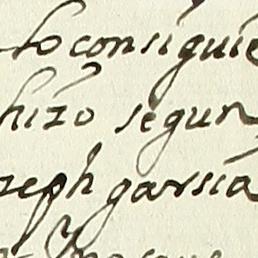 to consiguie
hizo segun
zeph garsia